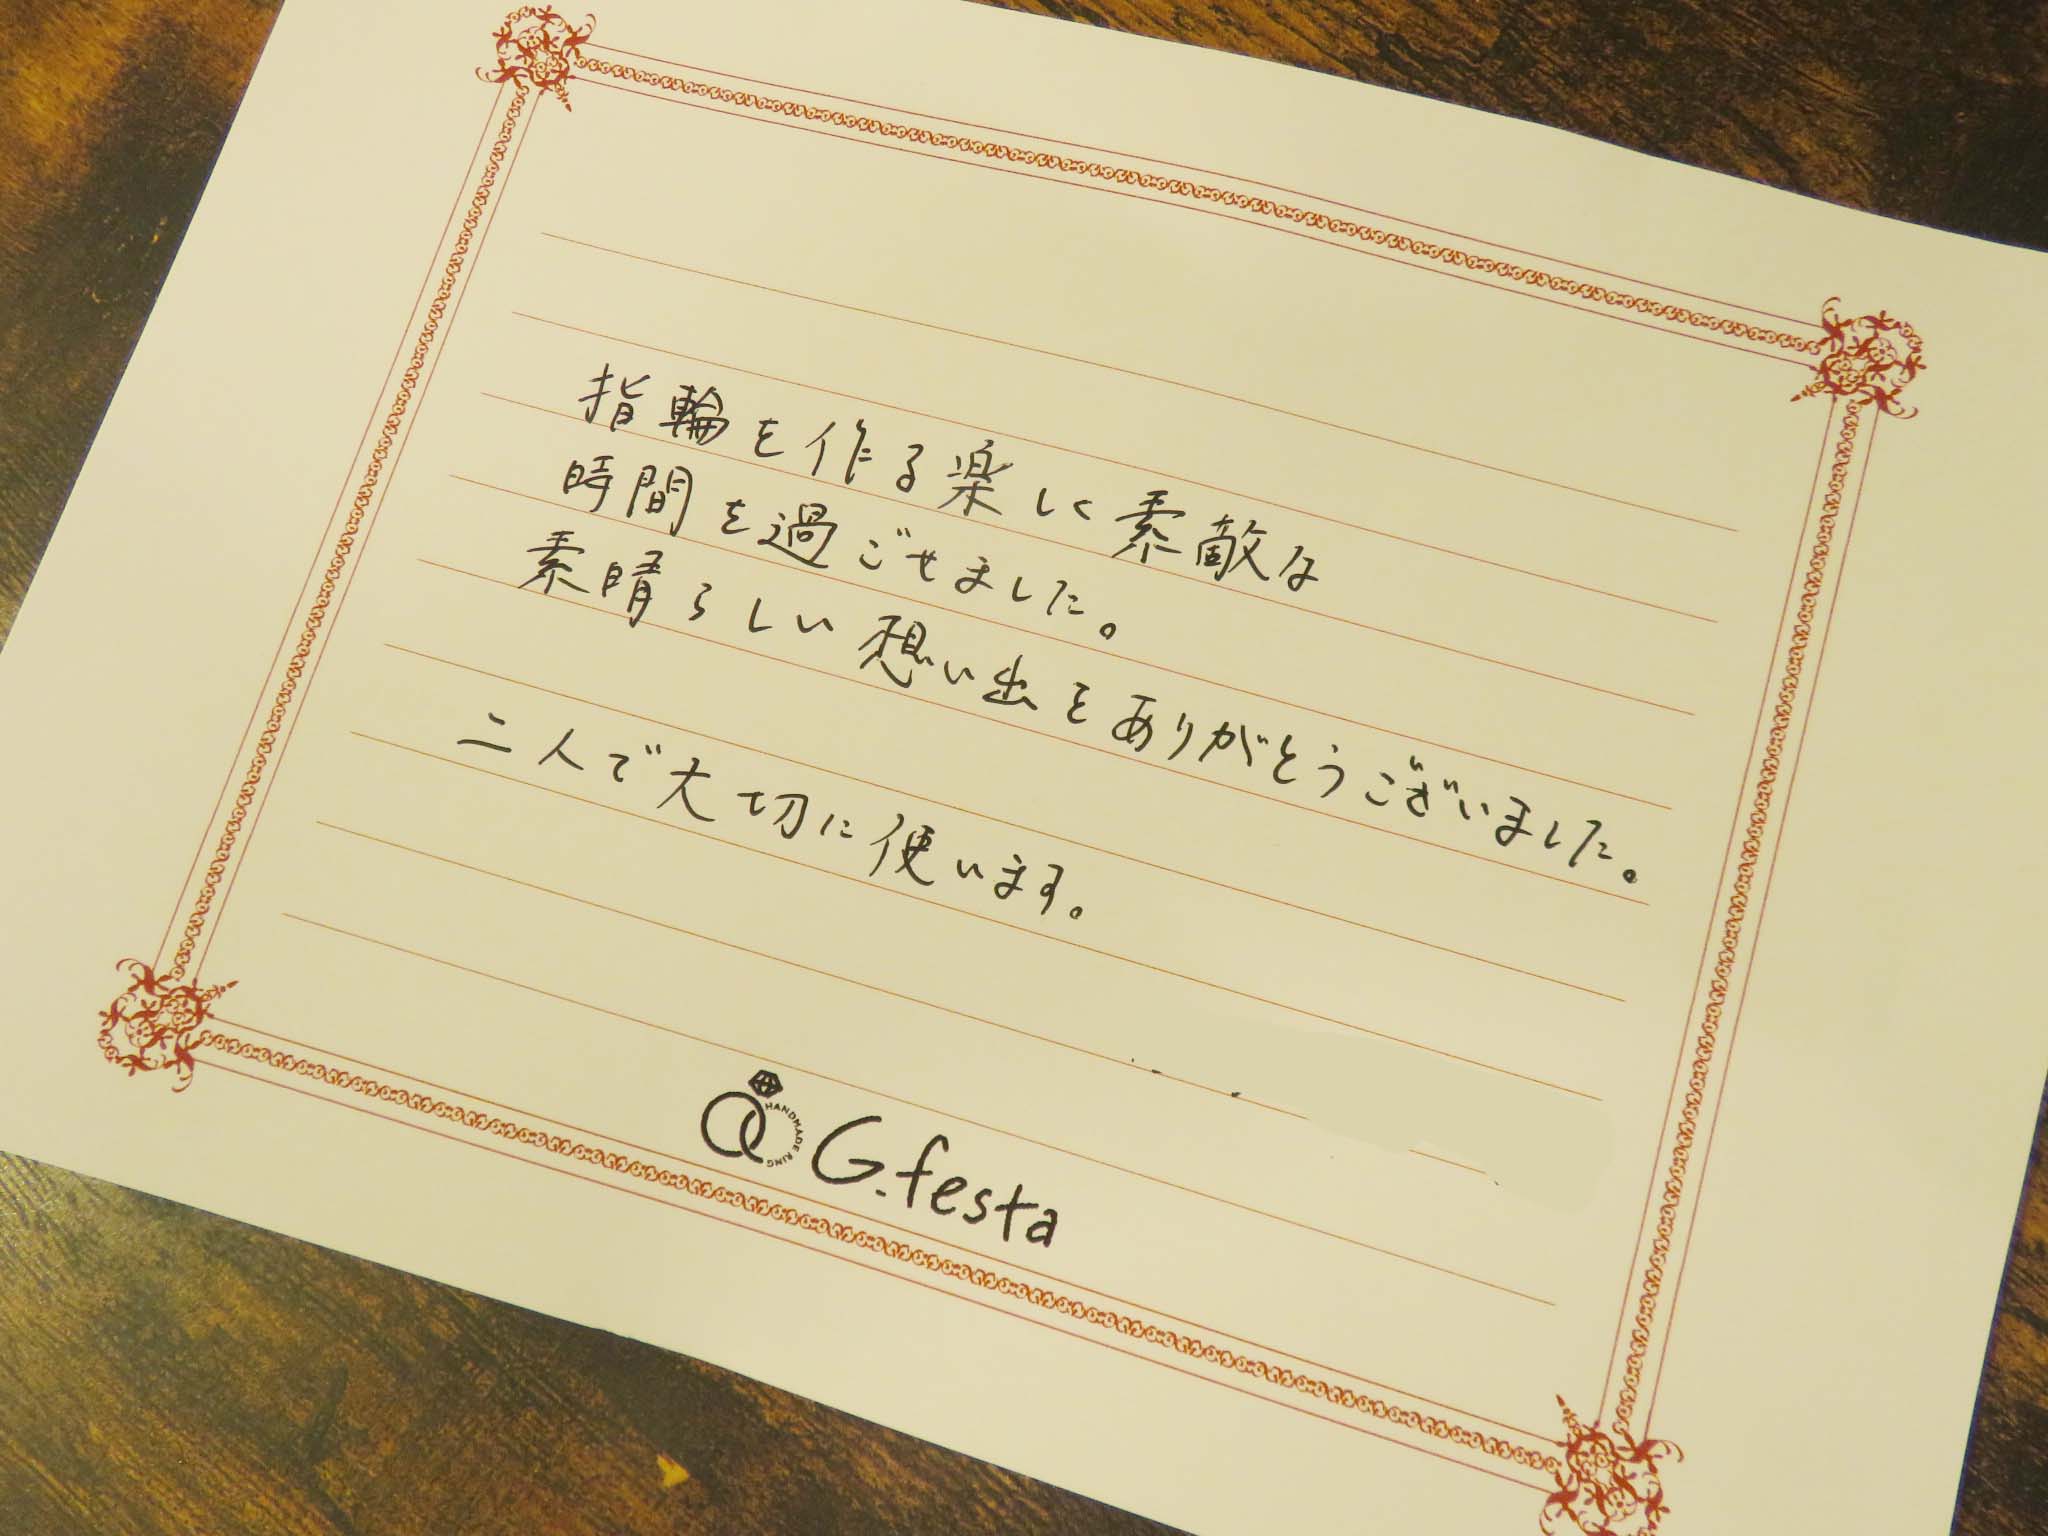 指輪を作る楽しく素敵な
時間を過ごせました。
素晴らしい想い出をありがとうございました。
二人で大切に使います。
HANDMADE RING
G.festa